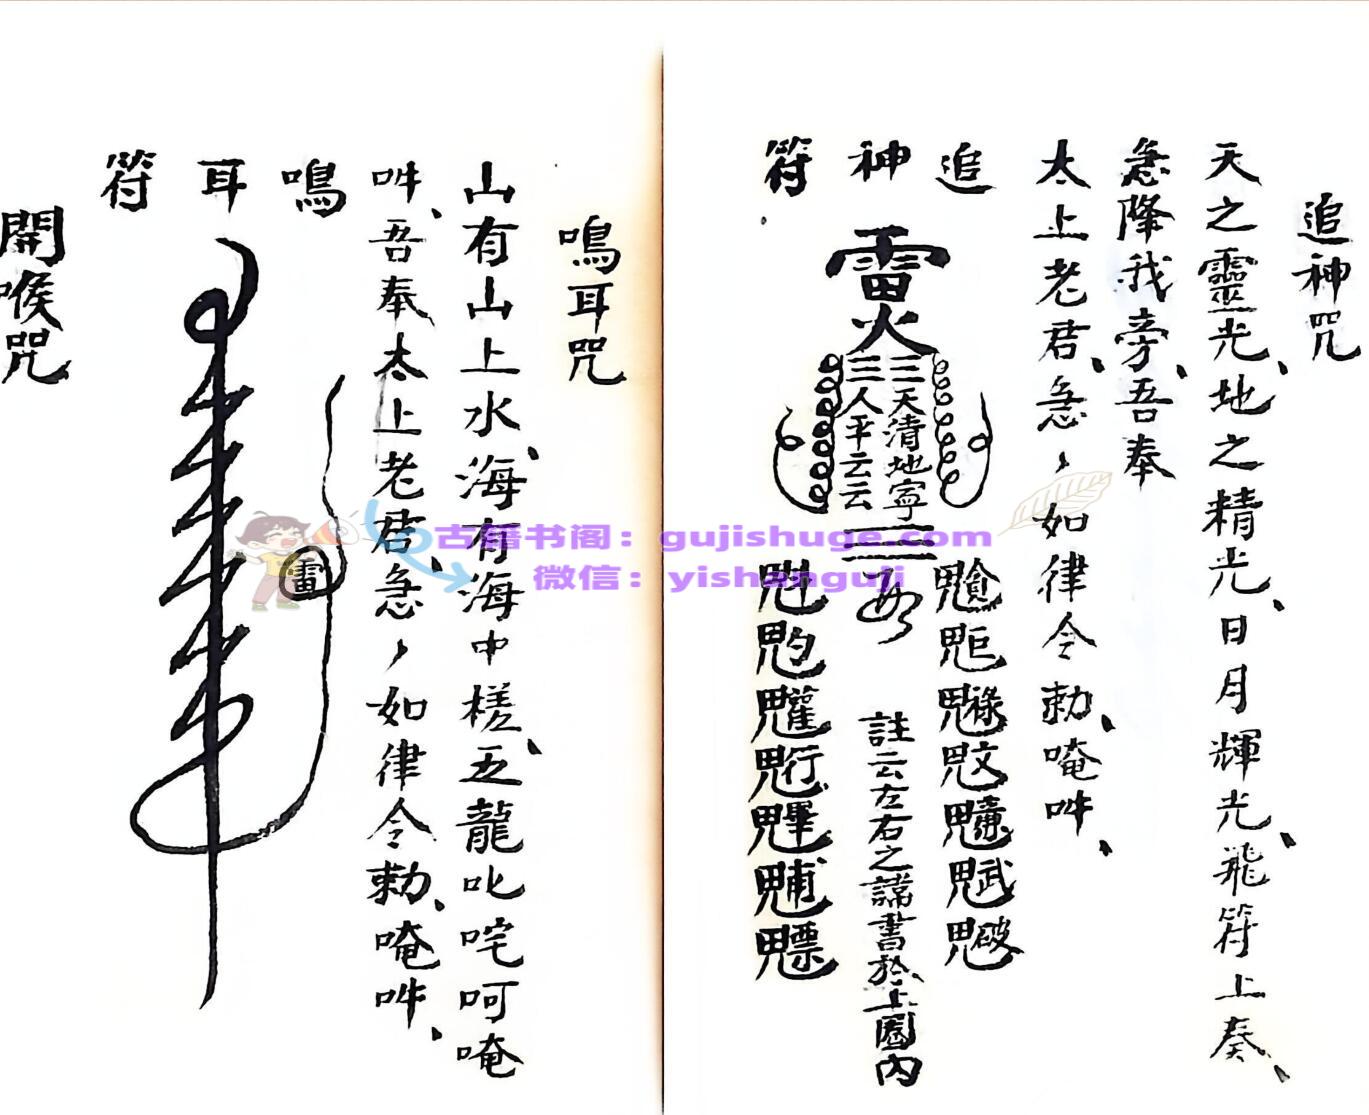 追神咒
天之靈光、地之精光、日月輝光、飛符上奏、
急降我旁、吾奉
太上老君、急々如律令勅、唵吽、
追神符
雷火
三三
天清地寧
人平云云
三
魁䰢魓
註云左右之諱書於上圈內
鳴耳咒
山有山上水、海有海中槎、五龍叱咤呵唵
吽、吾奉太上老君、急々如律令勅、唵吽、
鳴耳符
雷
開喉咒
古籍书阁：gujishuge.com
微信：yishanguji